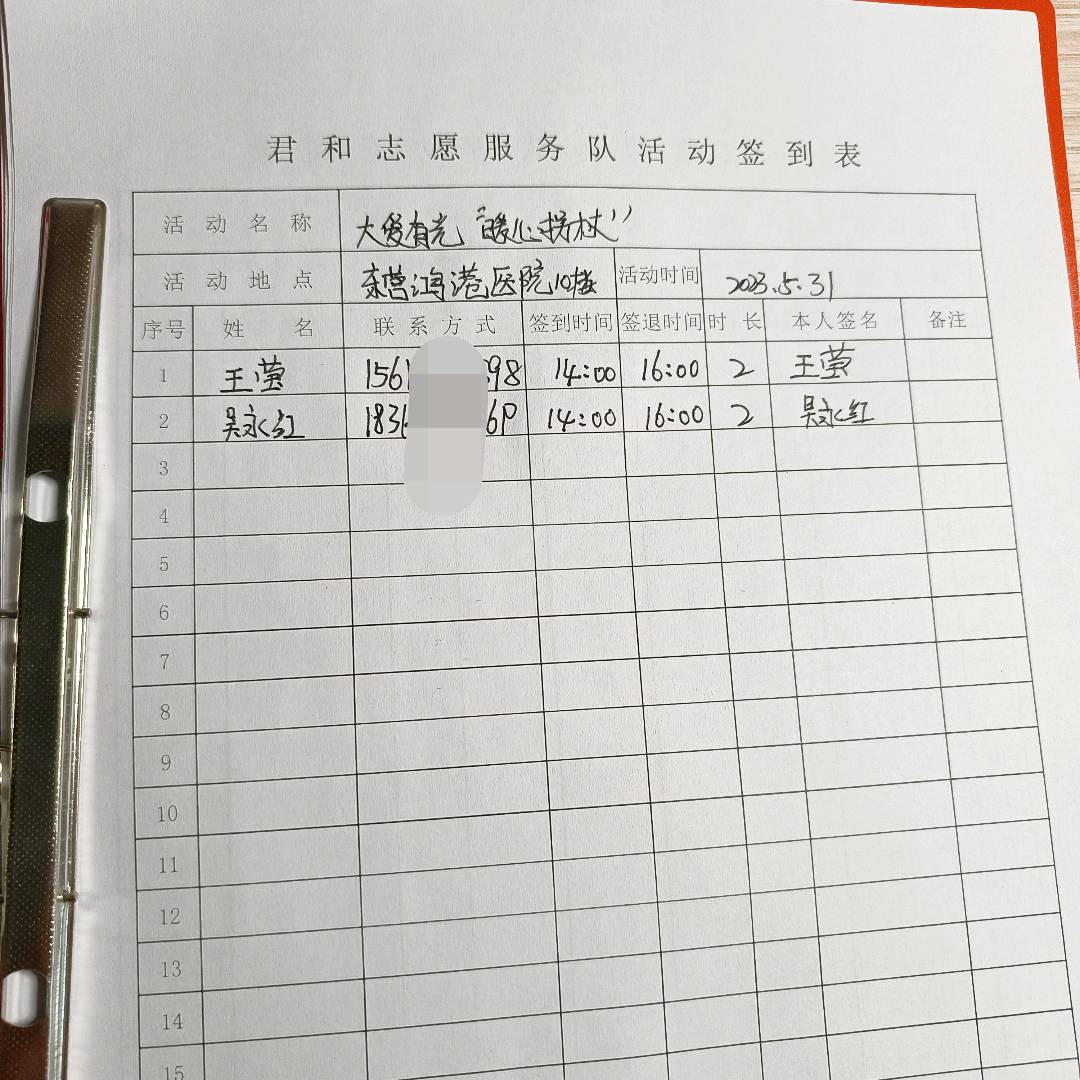 君和志愿服务队活动签到表
活动名称 大爱有光“暖心拐杖”
活动地点 东营鸿港医院10楼 活动时间 2023.5.31
序号 姓名 联系方式 签到时间 签退时间 时长 本人签名 备注
1 王莹 156 98 14:00 16:00 2 王莹
2 吴永红 183 14:00 16:00 2 吴永红
3
4
5
6
7
8
9
10
11
12
13
14
15